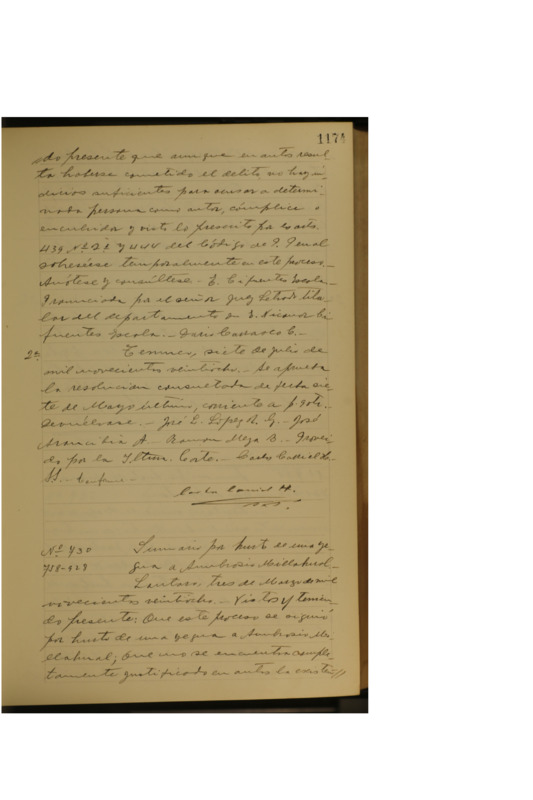 1174
do presente que aunque en autos resul
ta haberse cometido el delito no hay in
dicios suficientes para acusar a determi
nada persona como autor, cómplice o
encubridor y visto lo prescrito por los arts.
439 Nº 2º y 444 del Código de P. Penal
sobreséese temporalmente en este proceso.
Anótese y consúltese. - E. Cifuentes Escala -
Pronunciada por el señor Juez Letrado titu
lar del departamento don E. Nicanor Ci
fuentes Escala. - Dario Carrasco C. -
2ª Temuco, siete de julio de
mil novecientos veintiocho. - Se aprueba
la resolución consultada de fecha sie
te de Mayo último, corriente a f.
Devuélvase. - José L. López A. G. - José
Arancibia A - Ramon Meza B. - Provei
do por la Iltma. Corte. -
Conforme -
Nº 430 Sumario por hurto de una ye
738-928 gua a Ambrosio
Lautaro, tres de Mayo de mil
novecientos veintiocho. - Vistos y tenien
do presente: Que este proceso se siguió
por hurto de una yegua a Ambrosio
que no se encuentra comple
tamente justificado en autos la existen//